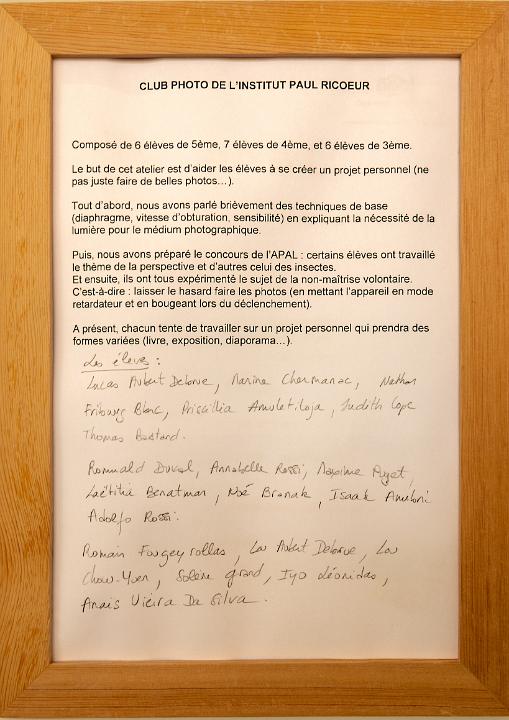 CLUB PHOTO DE L'INSTITUT PAUL RICOEUR
Composé de 6 élèves de 5ème, 7 élèves de 4ème, et 6 élèves de 3ème.
Le but de cet atelier est d'aider les élèves à se créer un projet personnel (ne
pas juste faire de belles photos…).
Tout d'abord, nous avons parlé brièvement des techniques de base
(diaphragme, vitesse d'obturation, sensibilité) en expliquant la nécessité de la
lumière pour le médium photographique.
Puis, nous avons préparé le concours de l'APAL : certains élèves ont travaillé
le thème de la perspective et d'autres celui des insectes.
Et ensuite, ils ont tous expérimenté le sujet de la non-maîtrise volontaire.
C'est-à-dire : laisser le hasard faire les photos (en mettant l'appareil en mode
retardateur et en bougeant lors du déclenchement).
A présent, chacun tente de travailler sur un projet personnel qui prendra des
formes variées (livre, exposition, diaporama…).
Les élèves :
Lucas Aubert Delorue, Marine Chermanac, Nathan
Fribourg Blanc, Priscillia, Judith Cope
Thomas Bastard.
Romuald Duval, Annabelle Rossi, Maxime Puget,
Laëtitia Benatman, Noé Branak, Isaak
Adolfo Rossi.
Romain Fougeyrollas, Lou Aubert Delorue, Lou
Chow-Yuen, Solène grand, Iyo Léonidas,
Anaïs Vieira Da Silva.